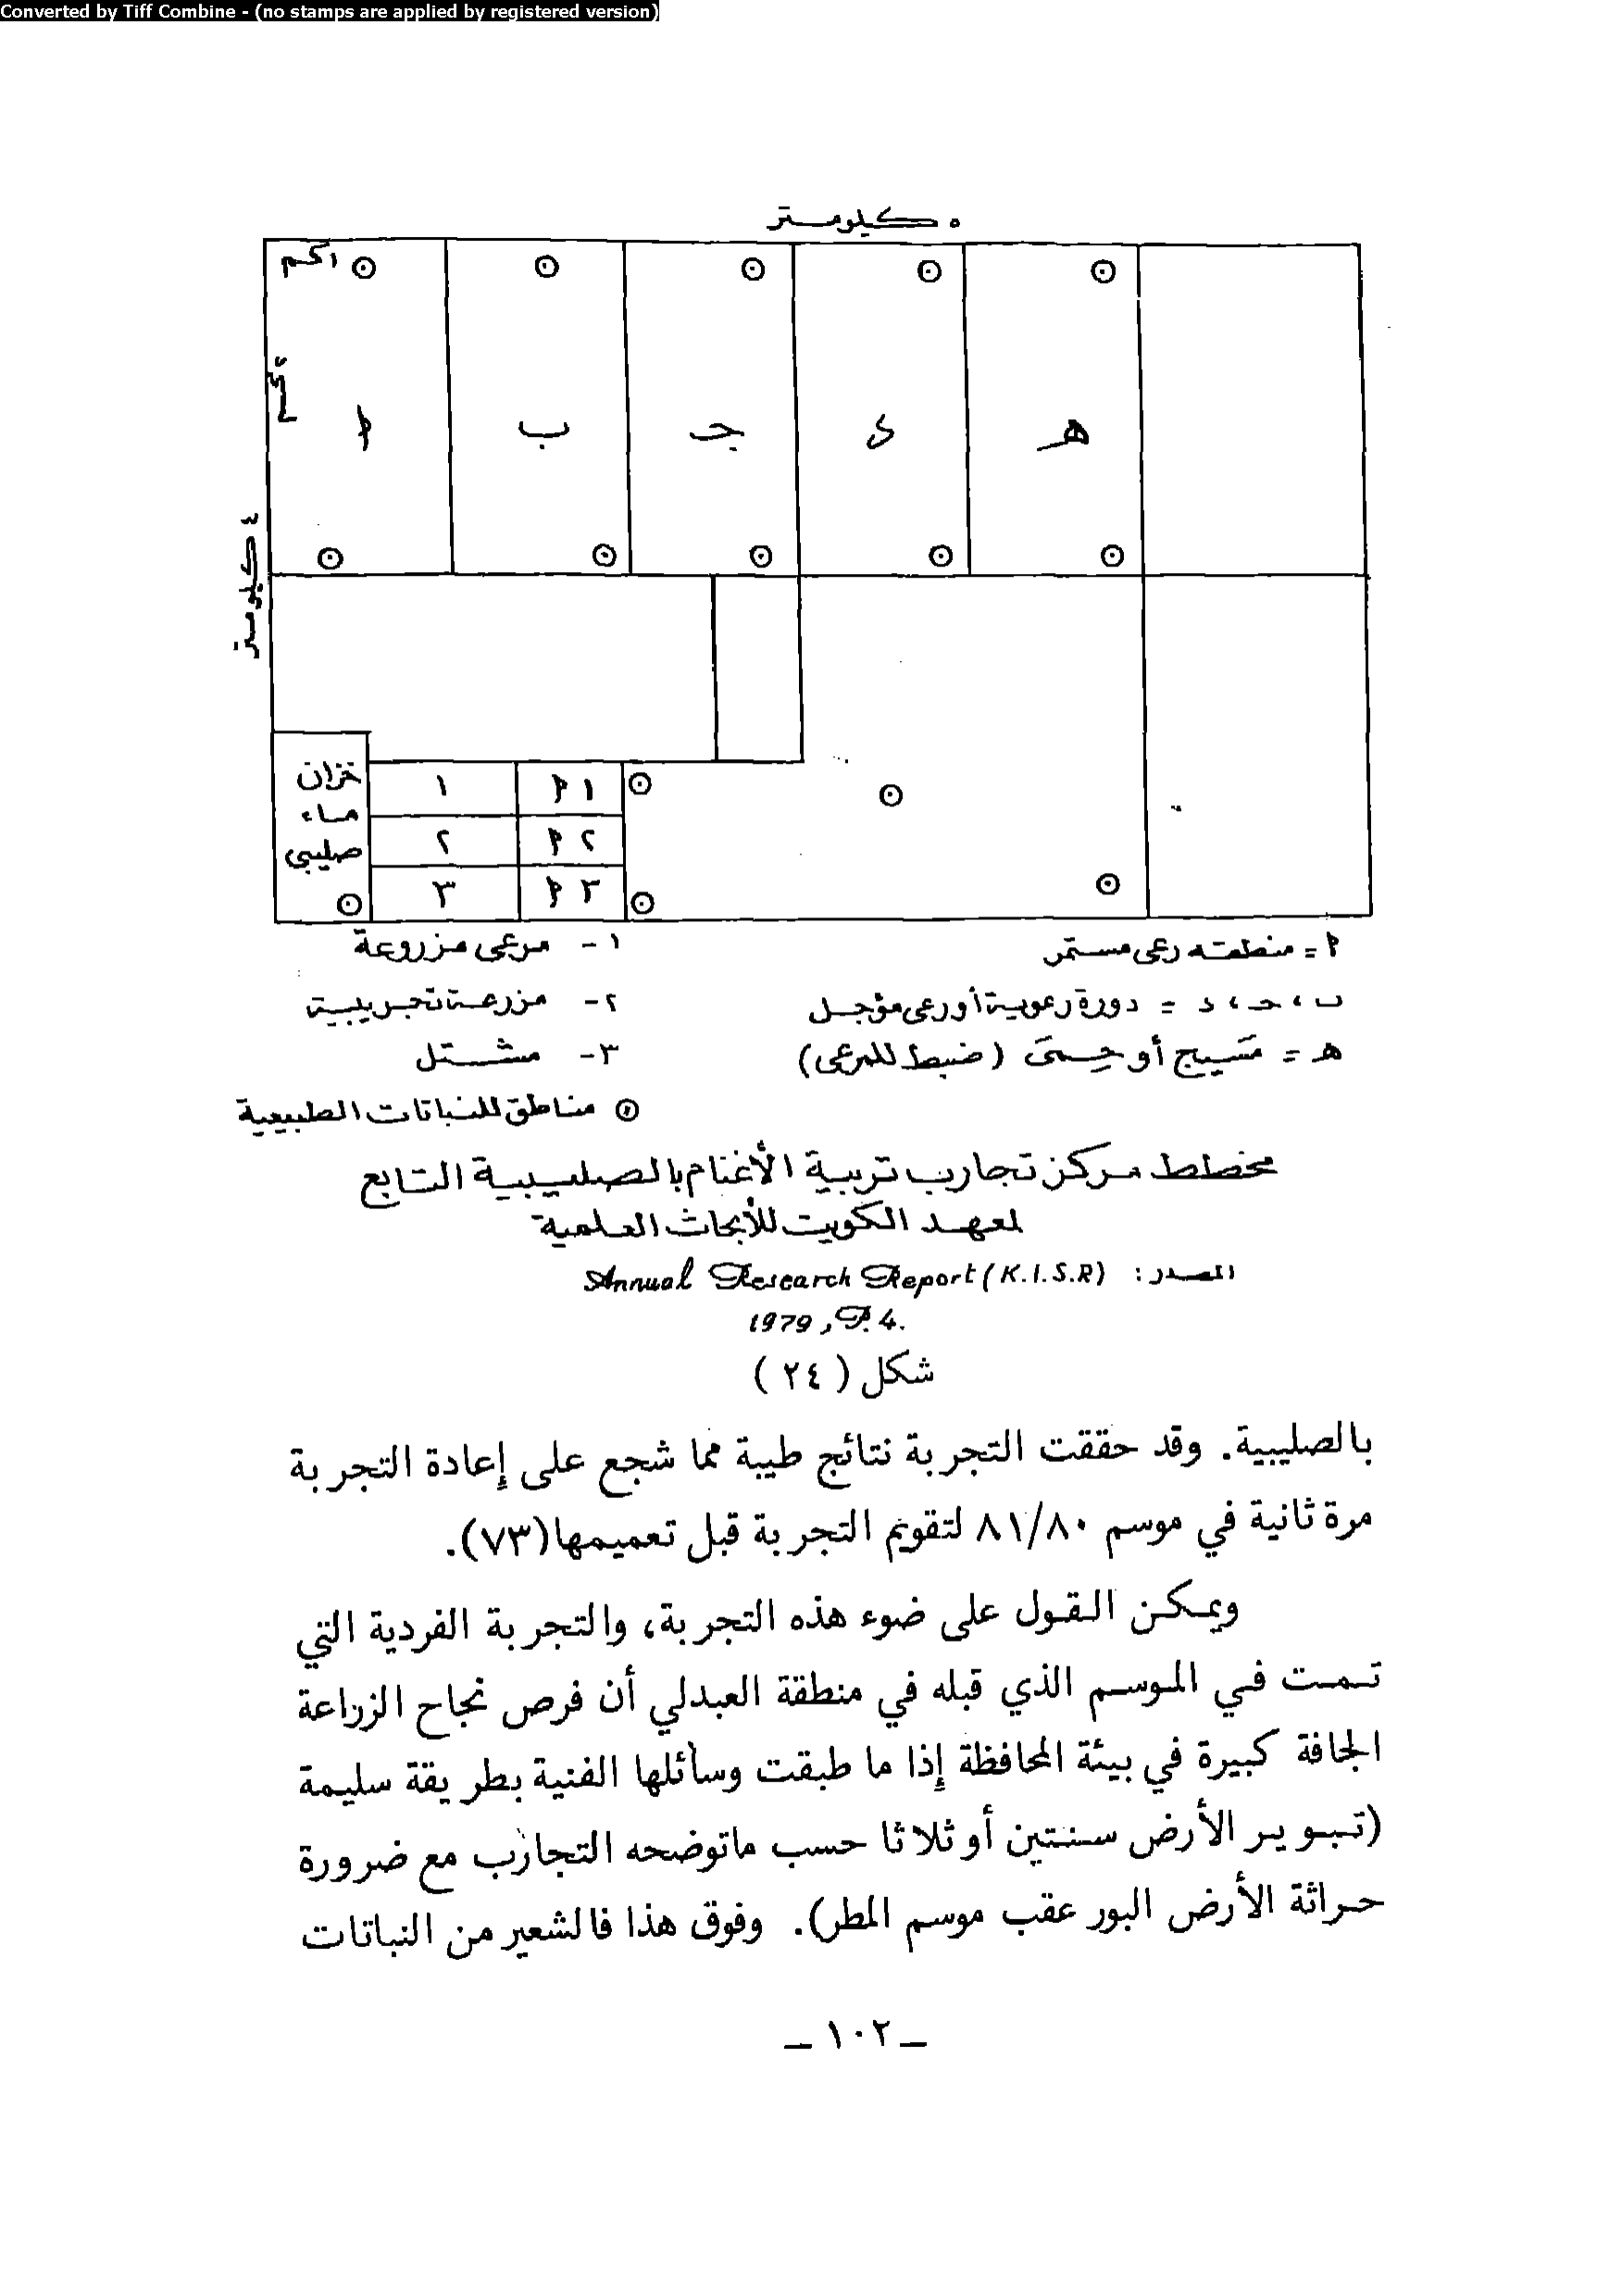 Converted by Tiff Combine - (no stamps are applied by registered version)
٥ كيلومتر
١كم
٢كم
٤ كيلومتر
أ
ب
جـ
د
هـ
خزان
ماء
صليبي
١
١ أ
٢
٢ أ
٣
٣ أ
أ = منطقة رعى مستمر
ب ، حـ ، د = دورة رعوية أو رعى مؤجل
هـ = مَسيج أو حِمىَ (ضبط للمرعى)
١- مرعى مزروعة
٢- مزرعة تجريبية
٣- مشتل
⊙ مناطق للنباتات الطبيعية
مخطط مركز تجارب تربية الأغنام بالصليبية التابع
لمعهد الكويت للأبحاث العلمية
المصدر : Annual Research Report (K.I.S.R)
1979, P. 4.
شكل ( ٢٤ )
بالصليبية. وقد حققت التجربة نتائج طيبة مما شجع على إعادة التجربة
مرة ثانية في موسم ٨١/٨٠ لتقويم التجربة قبل تعميمها(٧٣).
ويمكن القول على ضوء هذه التجربة، والتجربة الفردية التي
تمت في الموسم الذي قبله في منطقة العبدلي أن فرص نجاح الزراعة
الجافة كبيرة في بيئة المحافظة إذا ما طبقت وسائلها الفنية بطريقة سليمة
(تبوير الأرض سنتين أو ثلاثا حسب ماتوضحه التجارب مع ضرورة
حراثة الأرض البور عقب موسم المطر). وفوق هذا فالشعير من النباتات
— ١٠٢ —